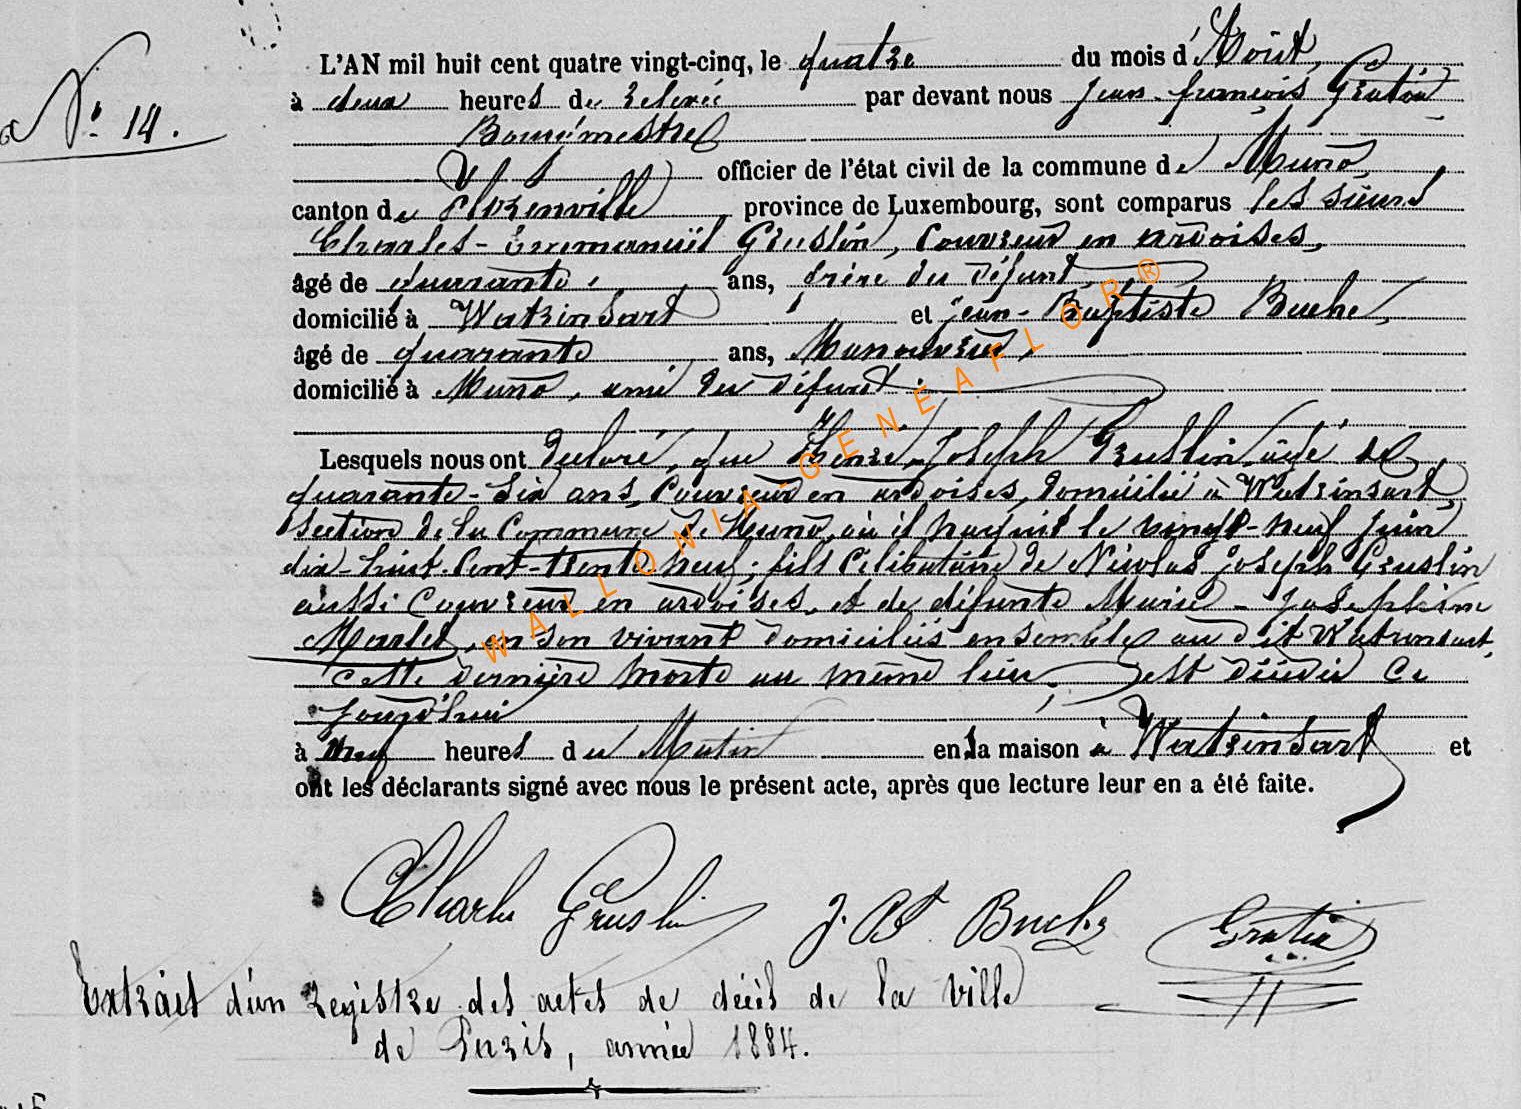 N° 14.
L'AN mil huit cent quatre vingt-cinq, le quatre du mois d'Août,
à deux heures de relevée par devant nous Jean-françois Gratia
Bourgmestre
officier de l'état civil de la commune de Muno,
canton de Florenville province de Luxembourg, sont comparus les sieurs
Charles-Emmanuël Gruslin, Couvreur en ardoises,
âgé de quarante ans, frère du défunt
domicilié à Watrinsart et Jean-Baptiste Buche,
âgé de quarante ans, Manouvrier,
domicilié à Muno, ami du défunt.
Lesquels nous ont déclaré, que Henri-Joseph Gruslin âgé de
quarante-six ans, Couvreur en ardoises, domicilié à Watrinsart,
section de la Commune de Muno, où il naquit le vingt-neuf Juin
dix-huit-Cent-trente neuf; fils Célibataire de Nicolas Joseph Gruslin
aussi Couvreur en ardoises, et de défunte Marie-Joséphine
en son vivant domiciliés ensemble au dit Watrinsart,
cette dernière morte au même lieu, est décédé ce
jourd'hui
à neuf heures du Matin en la maison à Watrinsart et
ont les déclarants signé avec nous le présent acte, après que lecture leur en a été faite.
Charles Gruslin J. Bt. Buche Gratia
Extrait d'un registre des actes de décès de la ville
de Paris, année 1884.
WALLONIA-GENEAFLOR®